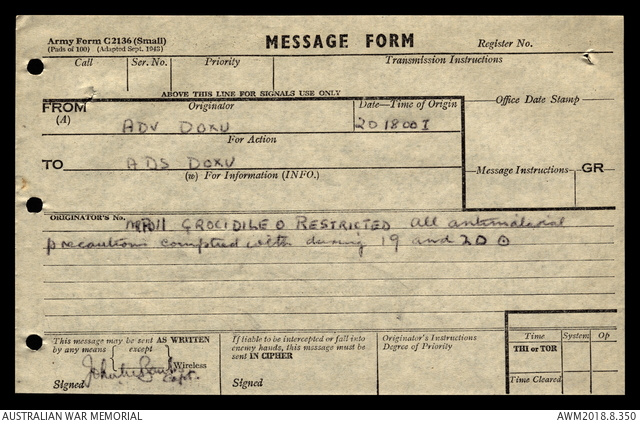 Army Form C2136 (Small)
(Pads of 100) (Adapted Sept. 1943)
MESSAGE FORM
Register No.
Call Ser. No. Priority Transmission Instructions
ABOVE THIS LINE FOR SIGNALS USE ONLY
FROM Originator Date—Time of Origin Office Date Stamp
(A) ADV DOXU 201800I
For Action
TO ADS DOXU
(w) For Information (INFO.)
Message Instructions GR
ORIGINATOR'S No.
CROCIDILE O RESTRICTED all antimalarial
precautions complied with during 19 and 20 O
This message may be sent AS WRITTEN
by any means except
Wireless
Signed Capt.
If liable to be intercepted or fall into
enemy hands, this message must be
sent IN CIPHER
Signed
Originator's Instructions
Degree of Priority
Time System Op
THI or TOR
Time Cleared
AUSTRALIAN WAR MEMORIAL
AWM2018.8.350